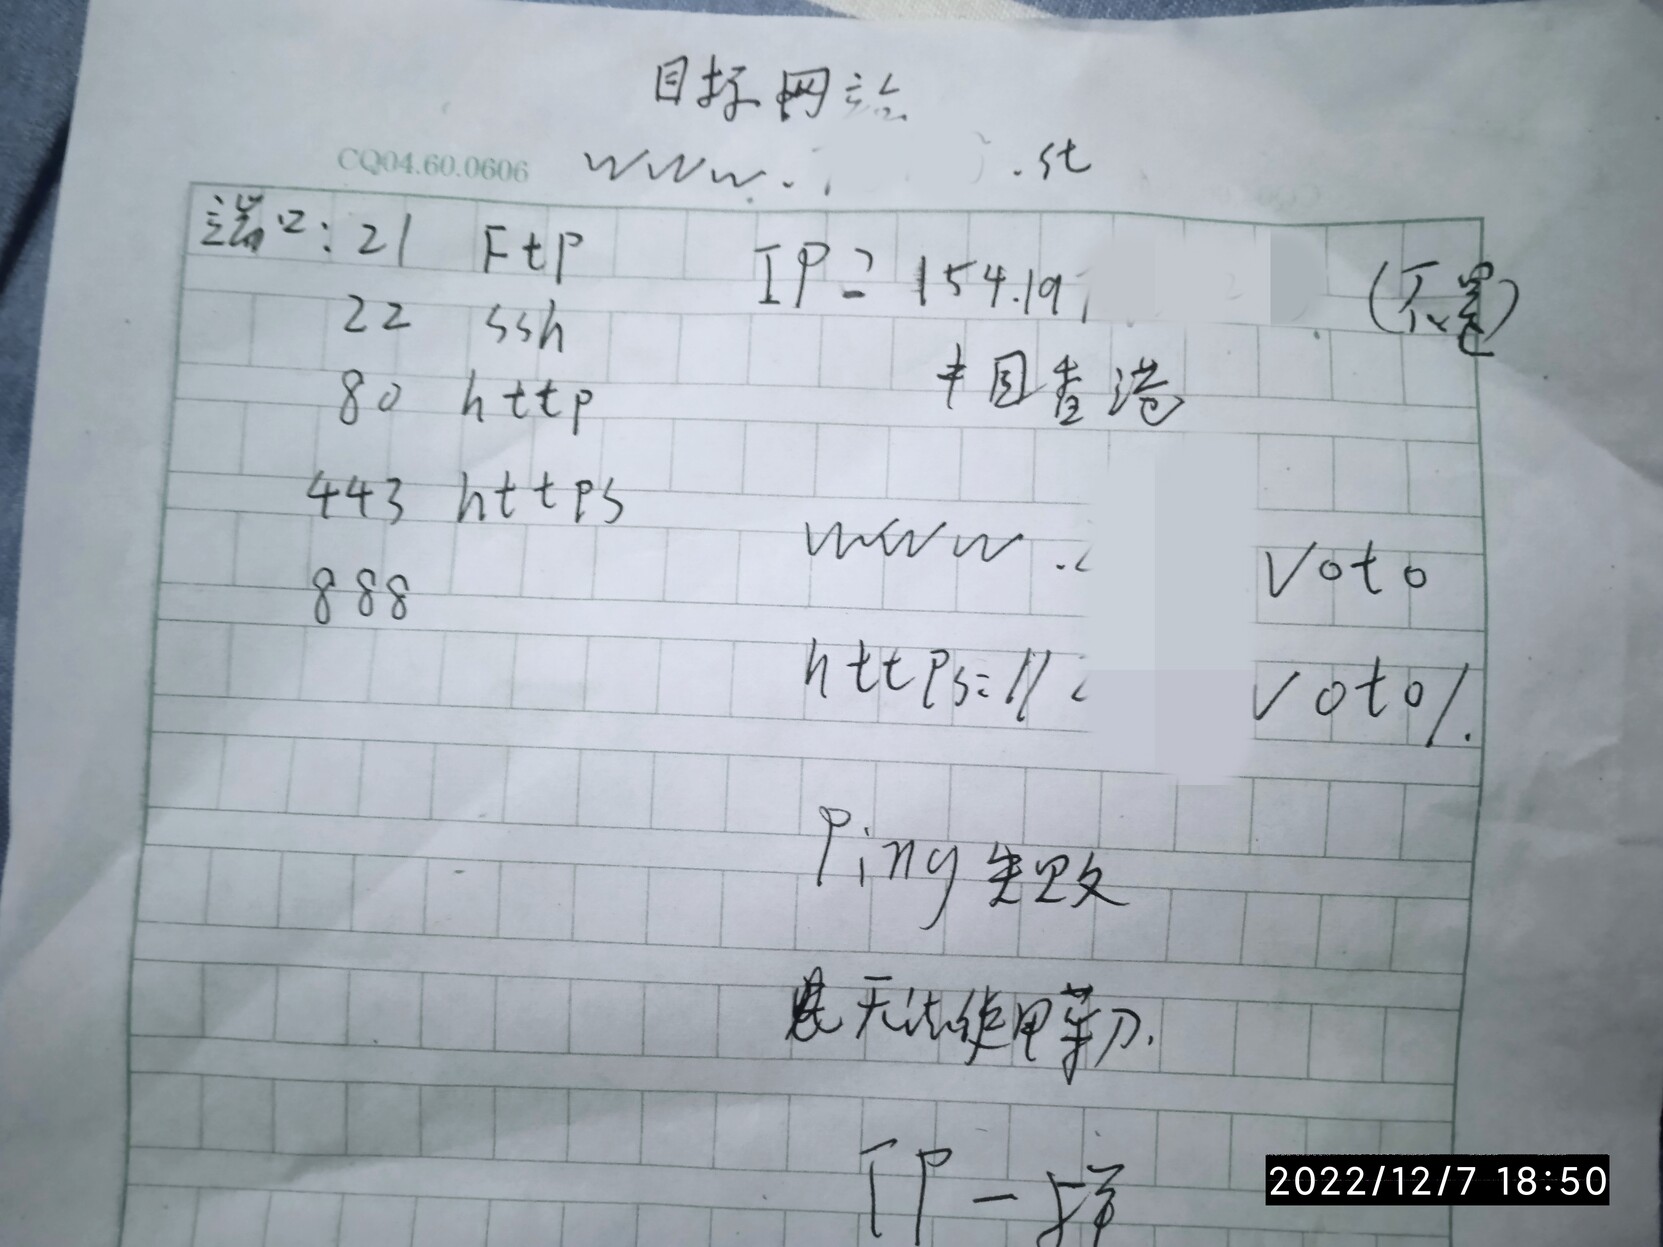 目标网站
CQ04.60.0606
www. .st
端口: 21 Ftp
22 ssh
80 http
443 https
888
IP: 154.19
中国香港
www. voto
https:// voto/.
Ping失败
无法使用菜刀.
IP一
2022/12/7 18:50